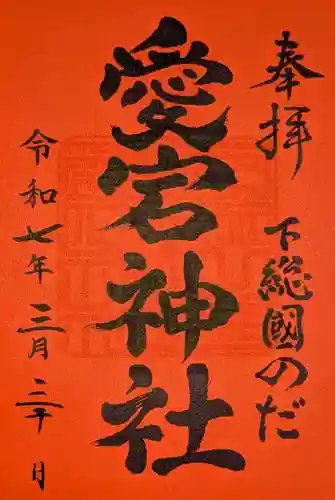 奉拝
下総國のだ
愛宕神社
令和七年三月三十日